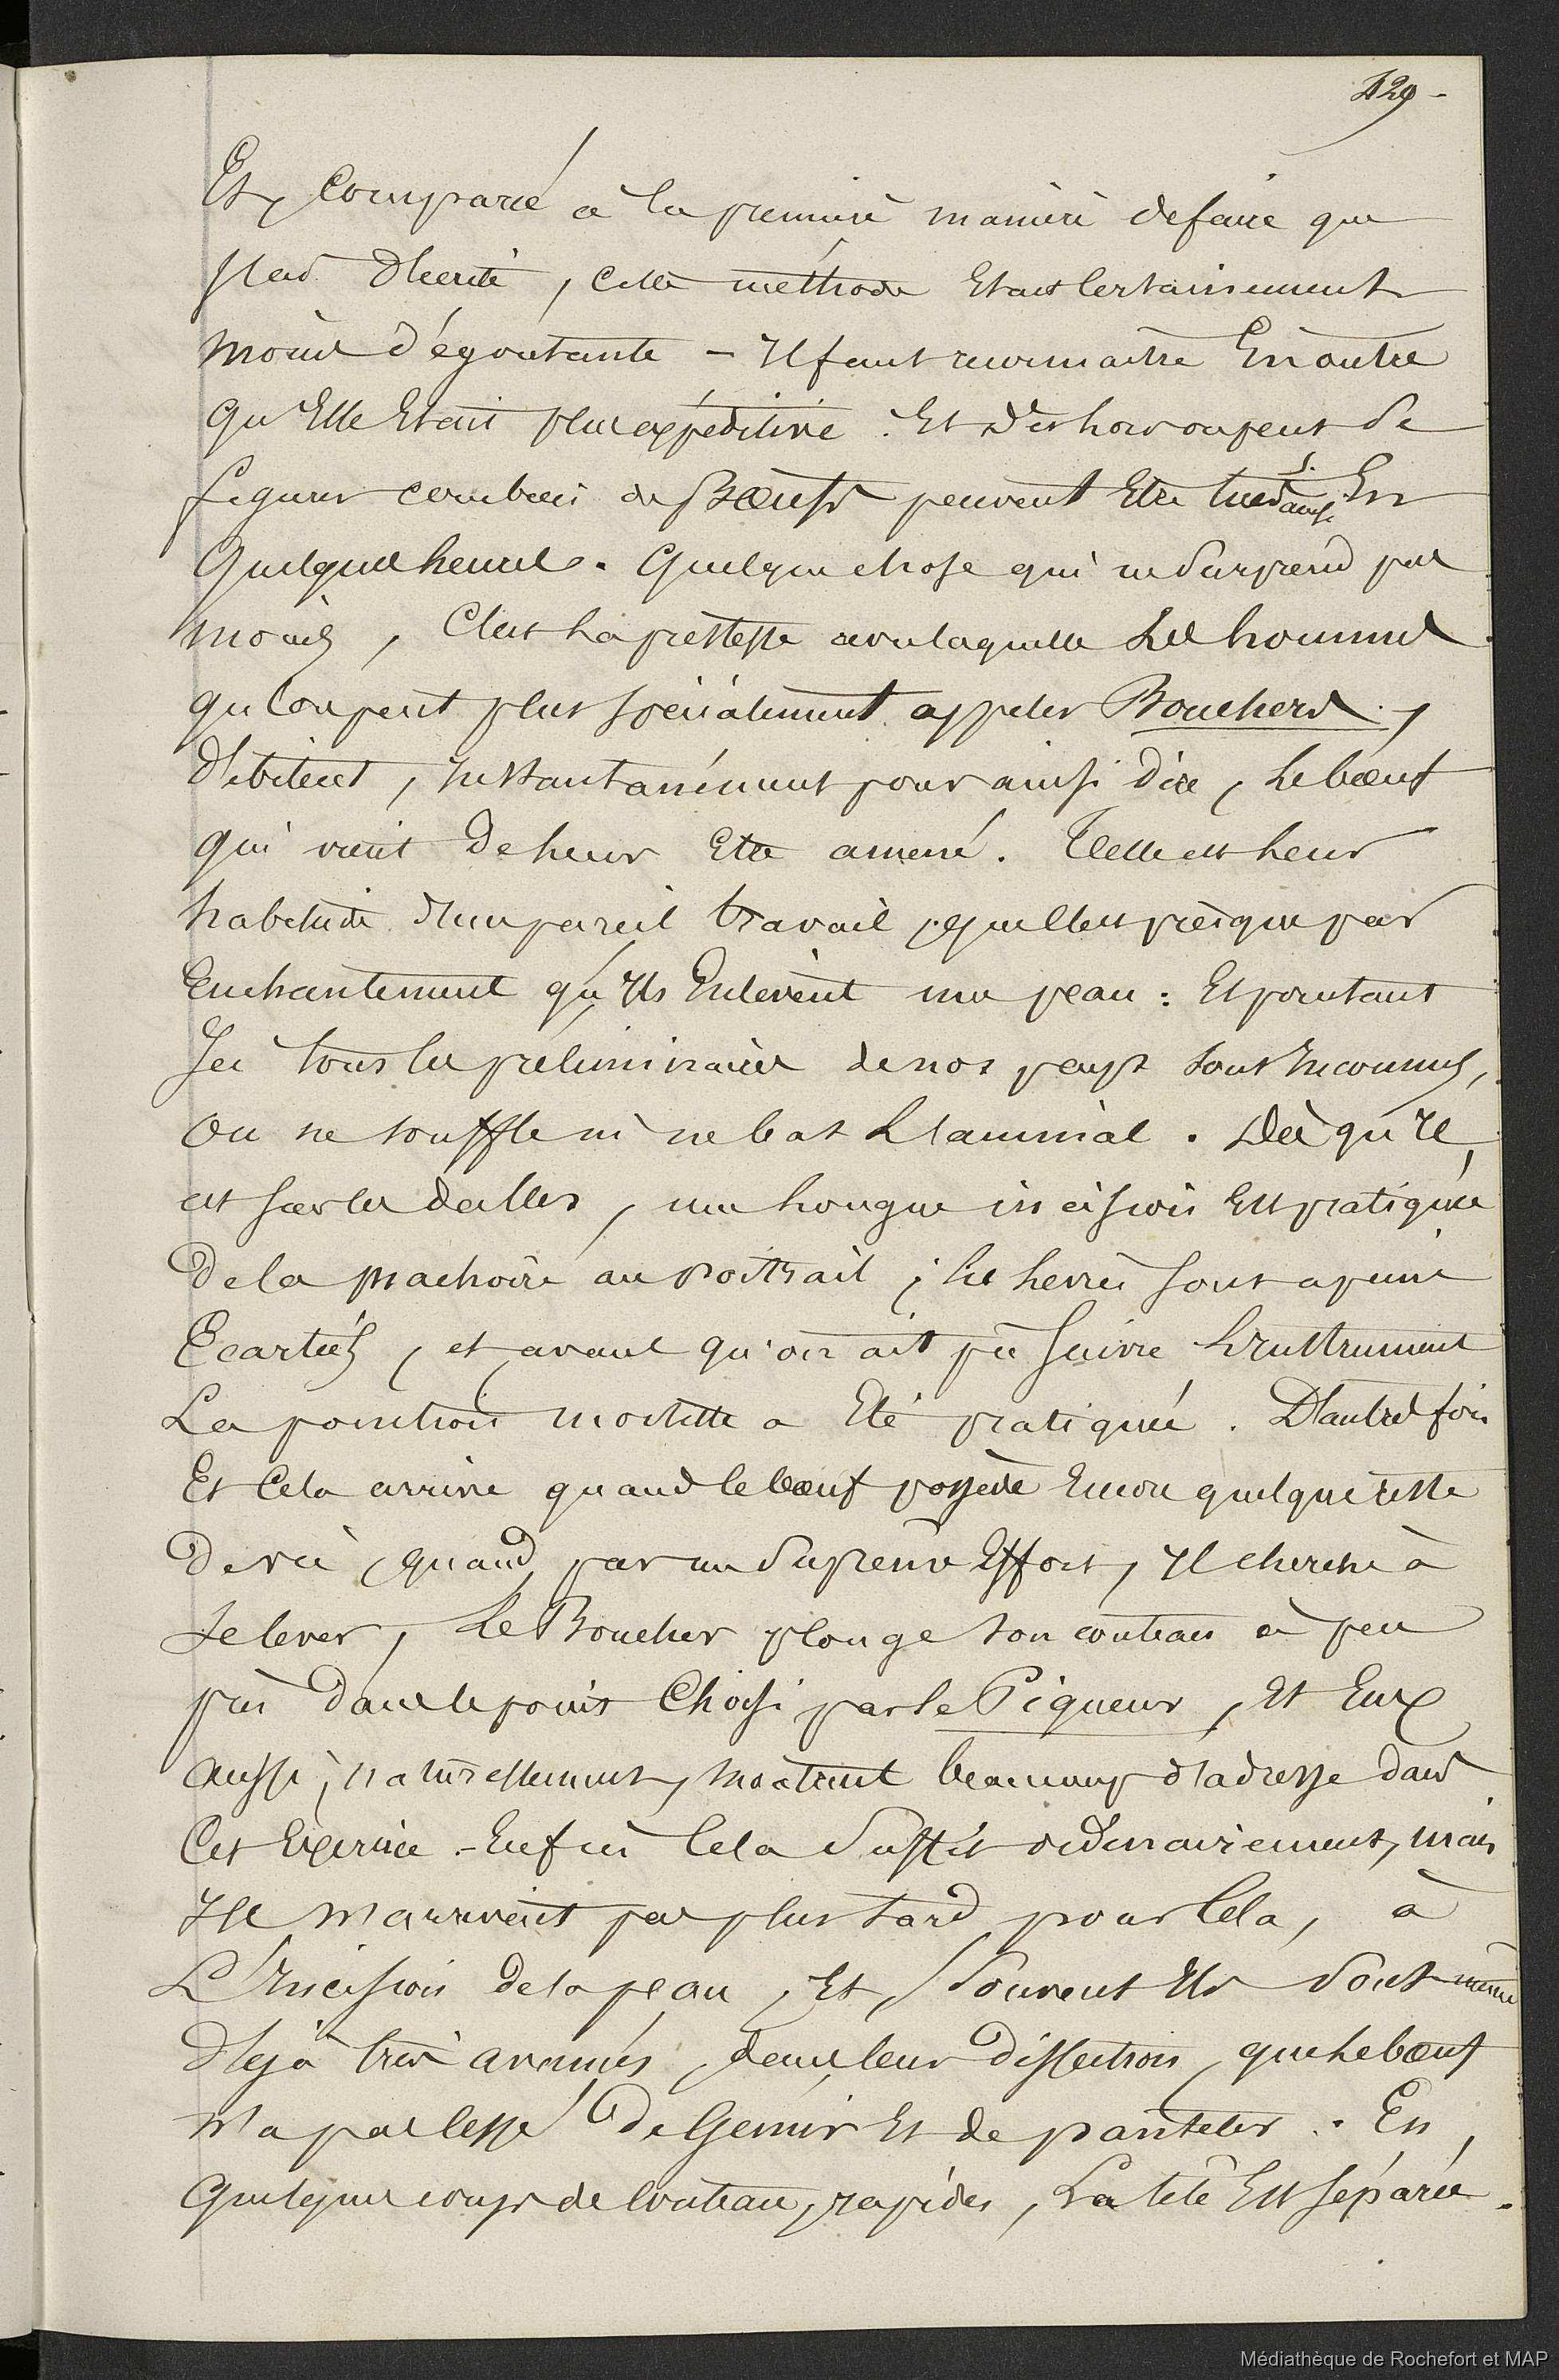 129 -
Et, Comparée à la premiére maniére de faire que
J'ai d'écrite, cette méthode Etait Certainement
moins d'égoutante - Il faut reconnaitre En outre
qu'Elle Etait plus expéditive. Et dès lors on peut se
figurer combien de Bœufs peuvent Etre tués ainsi En
quelques heures. Quelque chose qui ne surprend pas
moins, C'est la prestesse avec laquelle Les hommes
que l'on peut plus spécialement appeler Bouchers,
débitent, Instantanément pour ainsi dire, le bœuf
qui vient de leur Etre amené. Telle est leur
habitude d'un pareil travail, que c'est presque par
Enchantement qu'Ils Enlèvent une peau : Et pourtant
Ici tous les préliminaires de nos pays sont Inconnus,
On ne souffle ni ne bat L'animal. Dès qu'Il
est sur les dalles, une longue incision Est pratiquée
de la machoire au poitrail ; les levres sont a peine
Ecartées, et avant qu'on ait pu suivre L'Instrument
La ponction mortelle a Eté pratiquée. D'autres fois
Et Cela arrive quand le bœuf possède Encore quelque reste
de vie, quand par un suprème Effort, Il cherche à
se lever, Le Boucher plonge son couteau à peu
près dans le point Choisi par le Piqueur, Et Eux
aussi, naturellement, montrent beaucoup d'adresse dans
Cet Exercice - Enfin Cela suffit ordinairement, mais
Ils n'arrivent pas plus tard pour Cela, à
L'Incision de la peau, Et, souvent Ils sont même
déjà très avancés, dans leur dissection, que le bœuf
n'a pas cessé de Gémir Et de panteler. En
quelques coups de Couteau, rapides, La tête Est séparée.
Médiathèque de Rochefort et MAP